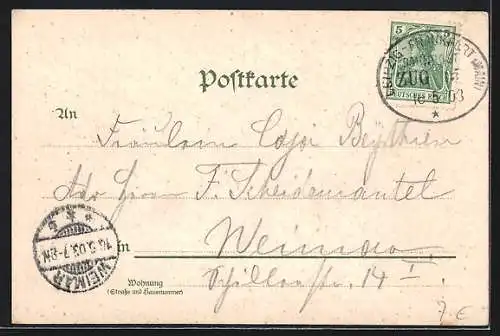 5
DEUTSCHES REICH
FRANKFURT (MAIN)
ZUG
16 5 03
*
Postkarte
An
Fräulein Beythien
Adr Herrn F. Scheidemantel
in Weimar
Wohnung
(Straße und Hausnummer)
Schillerstr. 14 I
WEIMAR
16.5.03.7-8N.
7 €